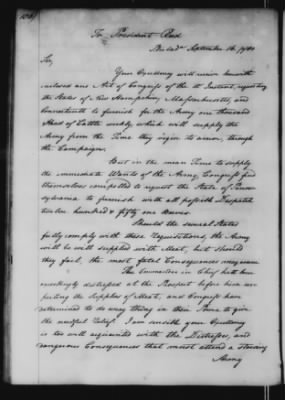 To President Reed
Philada September 16, 1780
Sir,
Your Excellency will receive herewith
inclosed an Act of Congress of the 15 Instant, requesting
the States of New Hampshire, Massachusetts, and
Connecticut to furnish for the Army one thousand
Head of Cattle weekly which will supply the
Army from the Time they begin to arrive, through
the Campaign.
But in the mean Time to supply
the immediate Wants of the Army, Congress find
themselves compelled to request the State of Penn-
sylvania to furnish with all possible Despatch
twelve hundred & fifty one Beeves.
Should the several States
fully comply with these Requisitions, the Army
will be well supplied with Meat, but should
they fail, the most fatal Consequences may ensue.
The Commander in Chief hath been
exceedingly distressed at the Prospect before him res-
pecting the Supplies of Meat, and Congress have
determined to do every thing in their Power to give
the needful Relief. I am sensible your Excellency
is too well acquainted with the Distresses, and
dangerous Consequences that must attend a starving
Army